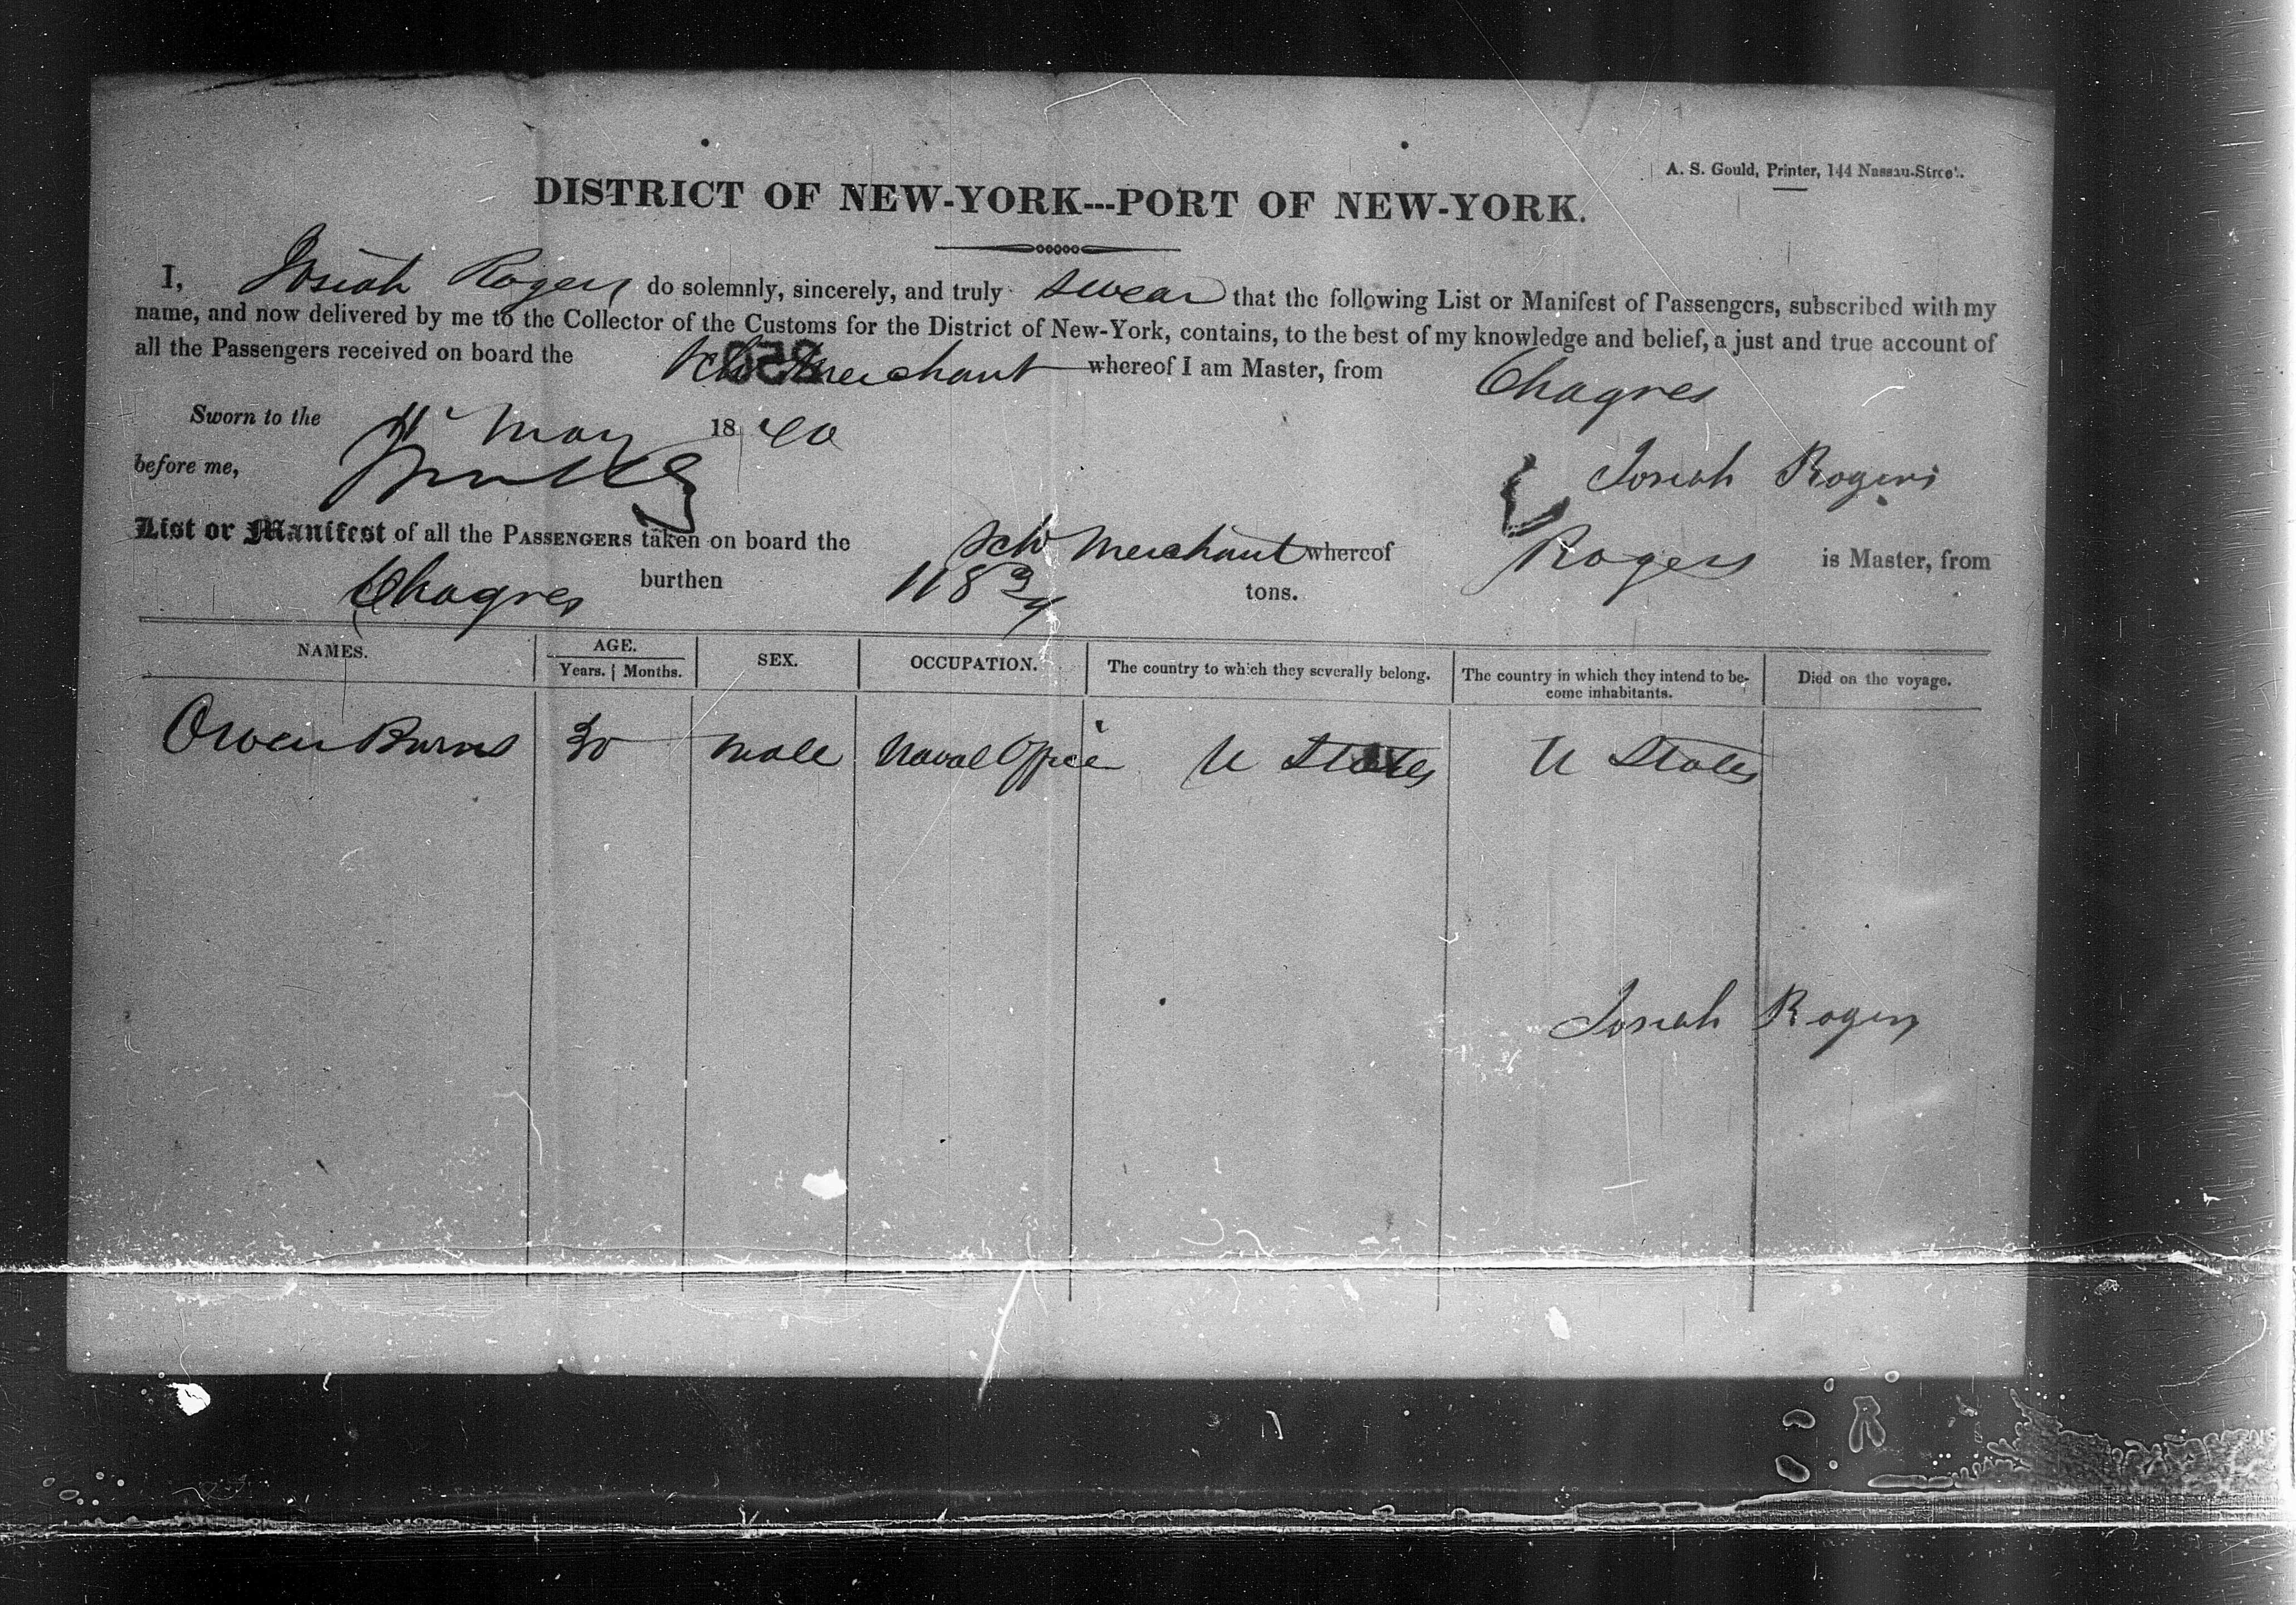 A. S. Gould, Printer, 144 Nassau-Street.
DISTRICT OF NEW-YORK---PORT OF NEW-YORK.
I, Josiah Rogers do solemnly, sincerely, and truly swear that the following List or Manifest of Passengers, subscribed with my
name, and now delivered by me to the Collector of the Customs for the District of New-York, contains, to the best of my knowledge and belief, a just and true account of
all the Passengers received on board the Schr Merchant whereof I am Master, from Chagres
Sworn to the 11 May 1840
before me,
Josiah Rogers
List or Manifest of all the PASSENGERS taken on board the Schr Merchant whereof Rogers is Master, from
Chagres burthen 118 3/4 tons.
NAMES. AGE. SEX. OCCUPATION. The country to which they severally belong. The country in which they intend to be- Died on the voyage.
Years. | Months. come inhabitants.
Owen Burns 30 male Naval Officer U States U States
Josiah Rogers